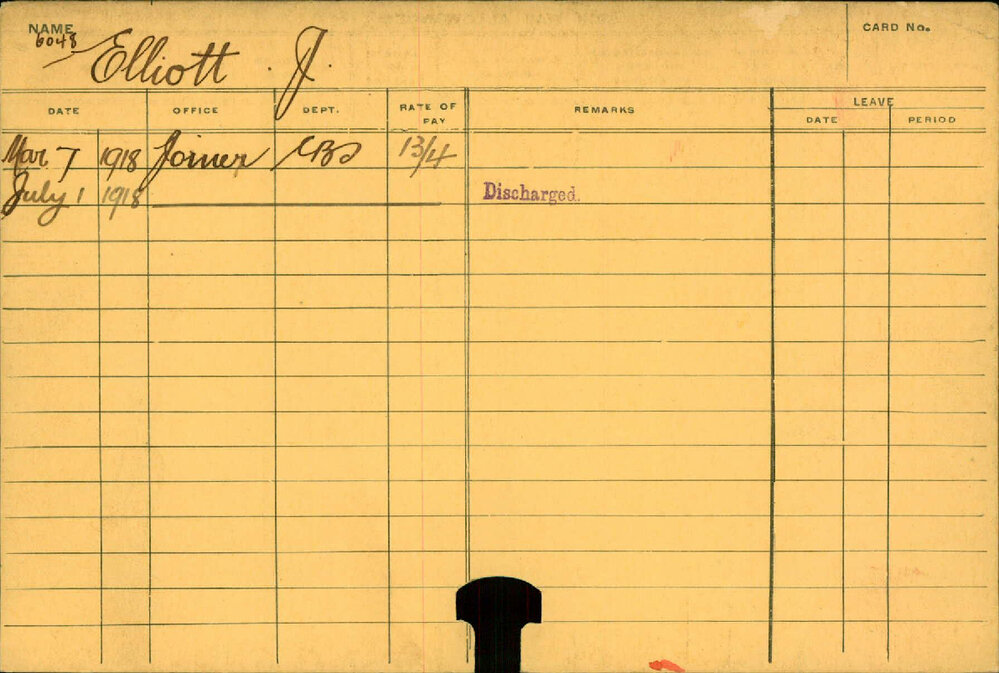 NAME CARD No.
6048 Elliott . J.
DATE OFFICE DEPT. RATE OF PAY REMARKS LEAVE
DATE PERIOD
Mar 7 1918 Joiner CBD 13/4
July 1 1918 Discharged.